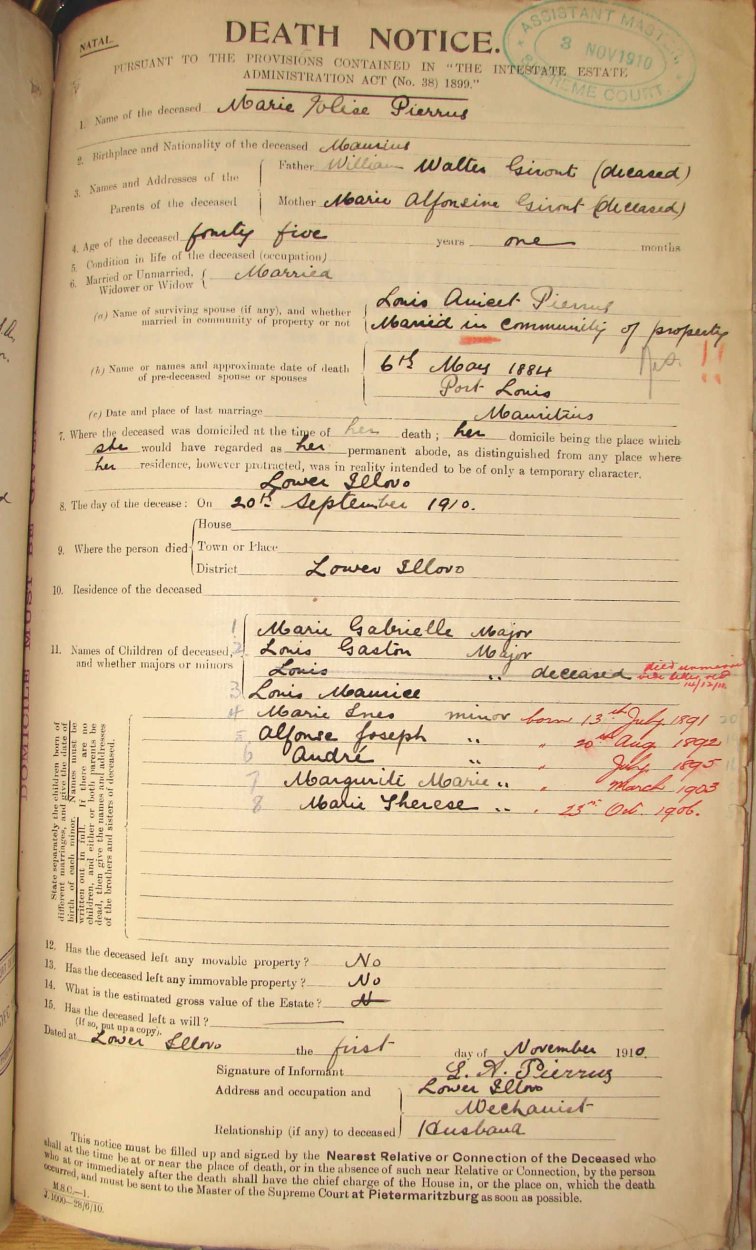 NATAL.
DEATH NOTICE.
ASSISTANT MASTER
3 NOV 1910
SUPREME COURT.
PURSUANT TO THE PROVISIONS CONTAINED IN "THE INTESTATE ESTATE
ADMINISTRATION ACT (No. 38) 1899."
1. Name of the deceased Marie Elise Pierrus
2. Birthplace and Nationality of the deceased Maurius
3. Names and Addresses of the Parents of the deceased
Father William Walter Giront (deceased)
Mother Marie Alfonsine Giront (deceased)
4. Age of the deceased fourty five years one months
5. Condition in life of the deceased (occupation)
6. Married or Unmarried, Widower or Widow Married
(a) Name of surviving spouse (if any), and whether married in community of property or not
Louis Anicet Pierrus
Married in community of property
!!
(b) Name or names and approximate date of death of pre-deceased spouse or spouses
6th May 1884
Port Louis
(c) Date and place of last marriage Mauritius
7. Where the deceased was domiciled at the time of her death; her domicile being the place which
she would have regarded as her permanent abode, as distinguished from any place where
her residence, however protracted, was in reality intended to be of only a temporary character.
Lower Illovo
8. The day of the decease: On 20th September 1910.
9. Where the person died
House
Town or Place
District Lower Illovo
10. Residence of the deceased
11. Names of Children of deceased, and whether majors or minors
1 Marie Gabrielle Major
2 Louis Gaston Major
Louis " deceased died unmarried
14/12/10
3 Louis Maurice
4 Marie Ines minor born 13th July 1891 20
5 Alfonse Joseph " " 20th Aug 1892
6 André " July 1895
7 Margurite Marie " " March 1903
8 Marie Therese " " 23rd Oct. 1906.
State separately the children born of
different marriages, and give the date of
birth of each minor. Names must be
written out in full. If there are no
children, and either or both parents be
dead, then give the names and addresses
of the brothers and sisters of deceased.
DOMICILE MUST BE GIVEN
12. Has the deceased left any movable property? No
13. Has the deceased left any immovable property? No
14. What is the estimated gross value of the Estate? N
15. Has the deceased left a will?
(If so, put up a copy).
Dated at Lower Illovo the first day of November 1910.
Signature of Informant L. A. Pierrus
Address and occupation and Lower Illovo
Mechanist
Relationship (if any) to deceased Husband
This notice must be filled up and signed by the Nearest Relative or Connection of the Deceased who
shall at the time be at or near the place of death, or in the absence of such near Relative or Connection, by the person
who at or immediately after the death shall have the chief charge of the House in, or the place on, which the death
occurred, and must be sent to the Master of the Supreme Court at Pietermaritzburg as soon as possible.
M.S.C.—1.
J.1000—28/6/10.